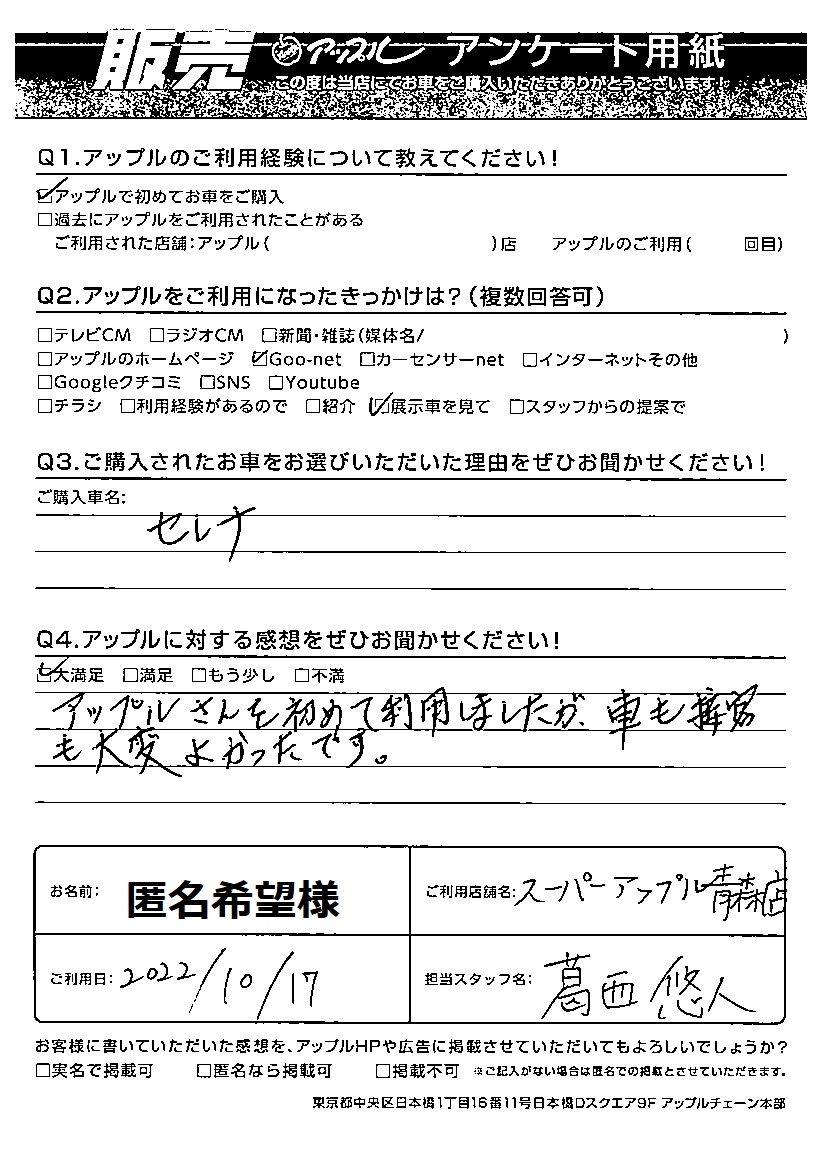 販売 アップル アンケート用紙
この度は当店にてお車をご購入いただきありがとうございます！
Q1.アップルのご利用経験について教えてください！
☑アップルで初めてお車をご購入
□過去にアップルをご利用されたことがある
ご利用された店舗：アップル（ ）店 アップルのご利用（ 回目）
Q2.アップルをご利用になったきっかけは？（複数回答可）
□テレビCM □ラジオCM □新聞・雑誌（媒体名/ ）
□アップルのホームページ ☑Goo-net □カーセンサーnet □インターネットその他
□Googleクチコミ □SNS □Youtube
□チラシ □利用経験があるので □紹介 ☑展示車を見て □スタッフからの提案で
Q3.ご購入されたお車をお選びいただいた理由をぜひお聞かせください！
ご購入車名：
セレナ
Q4.アップルに対する感想をぜひお聞かせください！
☑大満足 □満足 □もう少し □不満
アップルさんを初めて利用しましたが、車も接客
も大変よかったです。
お名前： 匿名希望様 ご利用店舗名：スーパーアップル青森店
ご利用日：2022/10/17 担当スタッフ名：葛西 悠人
お客様に書いていただいた感想を、アップルHPや広告に掲載させていただいてもよろしいでしょうか？
□実名で掲載可 □匿名なら掲載可 □掲載不可 ※ご記入がない場合は匿名での掲載とさせていただきます。
東京都中央区日本橋1丁目16番11号日本橋Dスクエア9F アップルチェーン本部